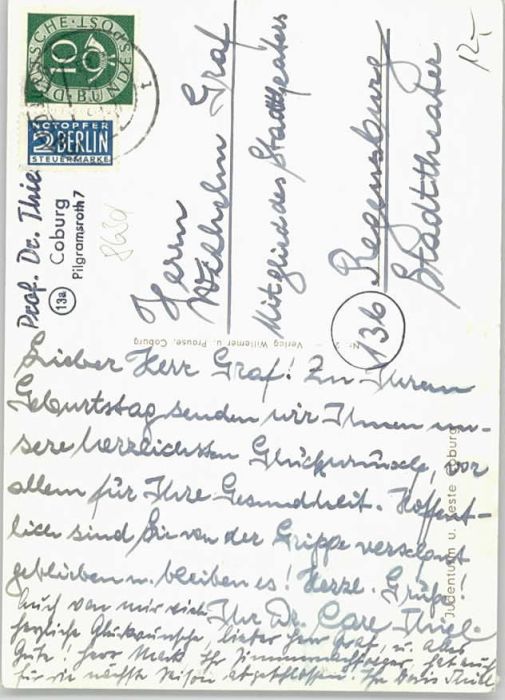 DEUTSCHE BUNDESPOST
10
NOTOPFER
2 BERLIN
STEUERMARKE
Prof. Dr. Thie
13a Coburg
Pilgramsroth 7
8630
12-
Herrn
Wilhelm Graf
Mitglied des Stadttheaters
13b Regensburg
Stadttheater
Verlag Willemer u. Prause, Coburg
Nr.
Judenturm u. Veste Coburg
Lieber Herr Graf! Zu Ihrem
Geburtstag senden wir Ihnen un-
sere herzlichsten Glückwünsche, vor
allem für Ihre Gesundheit. Hoffent-
lich sind Sie von der Grippe verschont
geblieben u. bleiben es! Herzl. Grüße!
Ihr Dr. Carl Thiel.
Auch von mir viele
herzliche Glückwünsche, lieber Herr Graf, u. alles
Gute! Herr Ihr Zimmernachfolger, hat auch
für die nächste Saison abgeschlossen. Ihre Doris Thiel